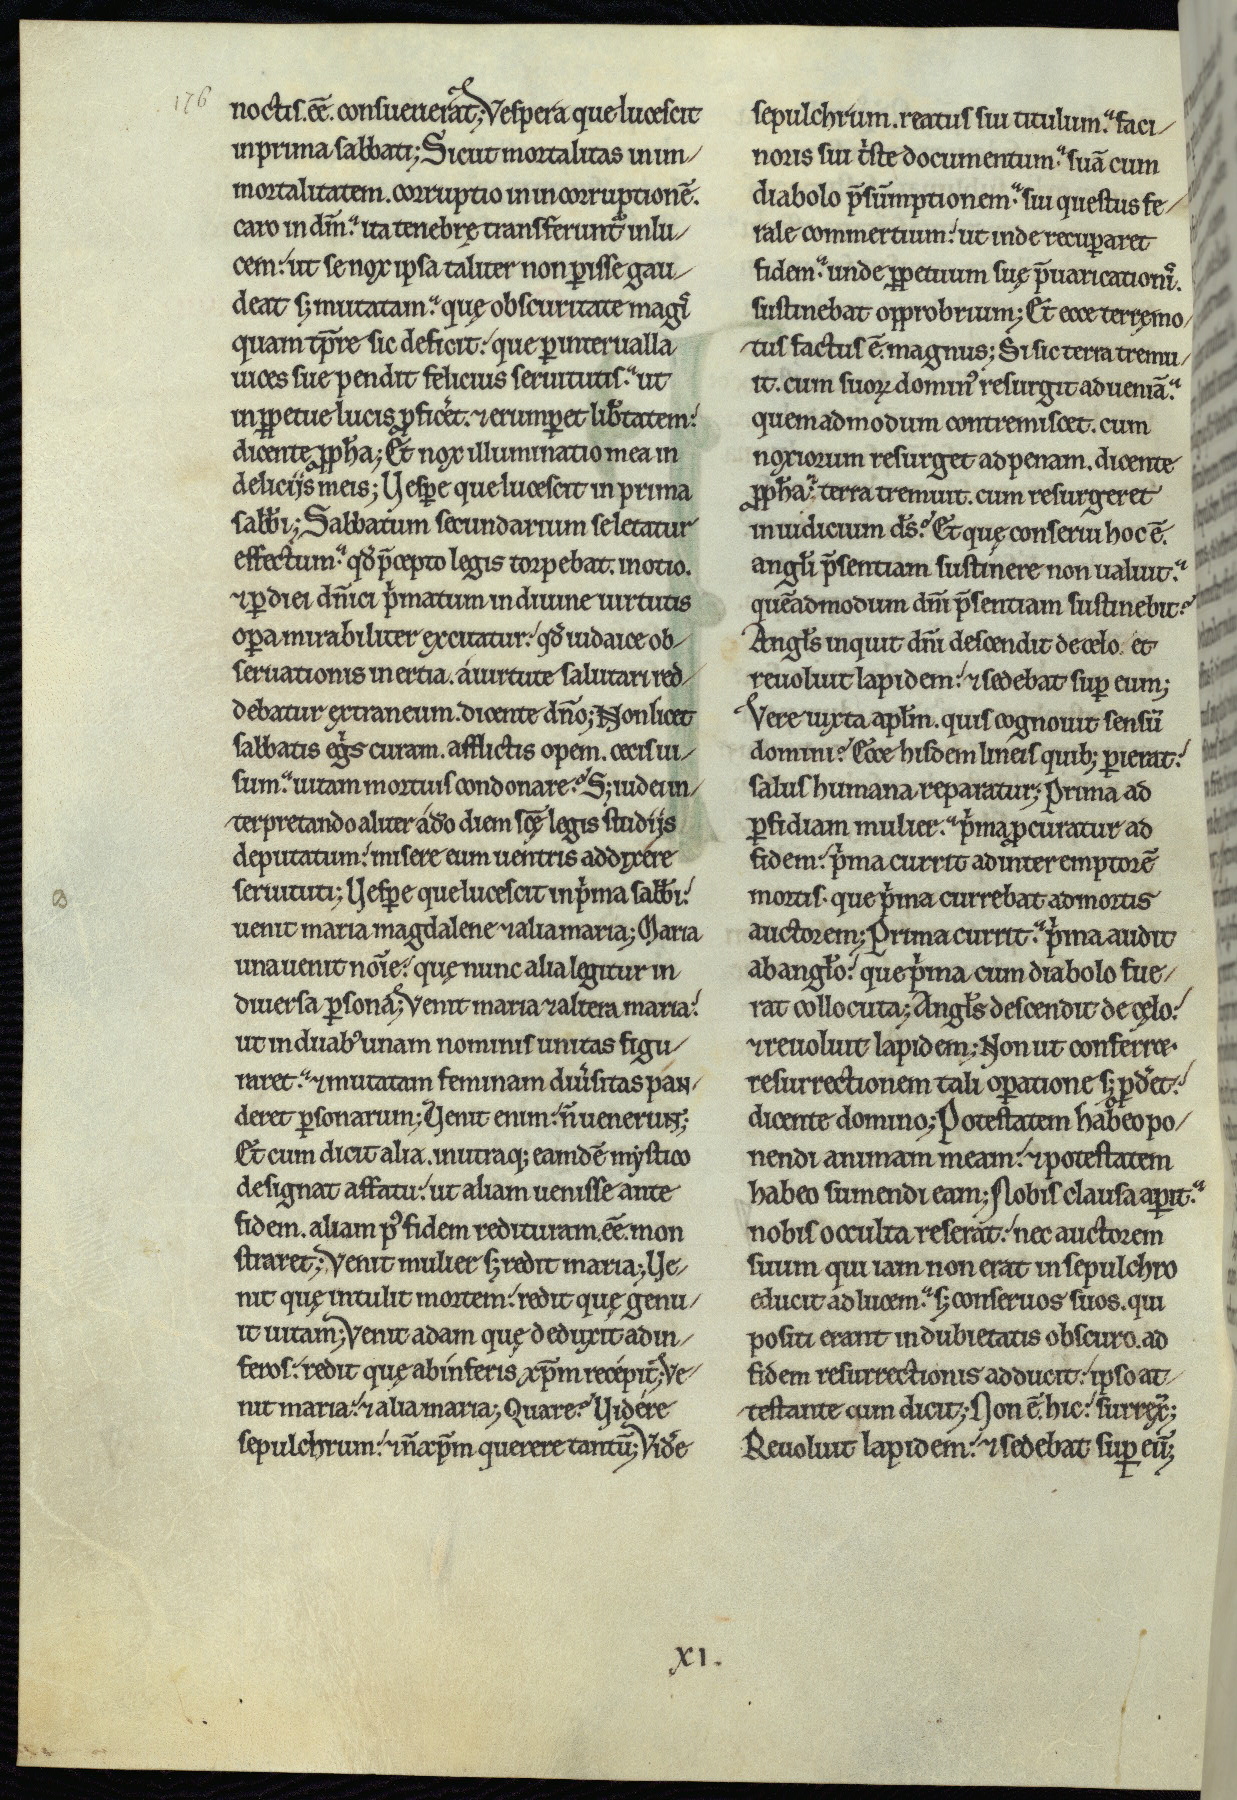 176
noctis. eē. consueuerat; Vespera que lucescit
in prima sabbati; Sicut mortalitas in im/
mortalitatem. corruptio in incorruptionē.
caro in dm̄. ita tenebrę transferunt᷑ in lu/
cem. ut se nox ipsa taliter non ꝑisse gau/
deat sꝫ mutatam. quę obscuritate magꝭ
quam tp̄re sic deficit. que ꝑ interualla
uices sue pendit felicius seruitutis. ut
in ꝑpetue lucis ꝓficeret. ⁊ erumꝑet lib̄tatem.
dicente ꝓph̄a; Et nox illuminatio mea in
delicijs meis; Vesꝑe que lucescit in prima
sabb̄i; Sabbatum secundarium se letatur
effectum. qd̄ p̄cepto legis torpebat. in otio.
⁊ ꝑ diei dn̄ici pͥmatum in diuine uirtutis
oꝑa mirabiliter excitatur. qd̄ iudaice ob/
seruationis inertia. a uirtute salutari red/
debatur extraneum. dicente dn̄o; Non licet
sabbatis egͥs curam. afflictis opem. cecis ui/
sum. uitam mortuis condonare? Sꝫ iudei in/
terpretando aliter a do diem scę̄ legis studijs
deputatum. misere eum uentris addixere
seruituti; Vesꝑe que lucescit in pͥma sabb̄i.
uenit maria magdalene ⁊ alia maria; Maria
una uenit noīe. quę nunc alia legitur in
diuersa ꝑsona; Venit maria ⁊ altera maria.
ut in duabꝰ unam nominis unitas figu/
raret. ⁊ mutatam feminam diūsitas pan/
deret ꝑsonarum; Venit enim. n̄ uenerunt;
Et cum dicit alia. in utraqꝫ eamdē mystico
designat affatu. ut aliam uenisse ante
fidem. aliam pꝰ fidem redituram. eē. mon
straret; Venit mulier sꝫ redit maria; Ve/
nit quę intulit mortem. redit quę genu/
it uitam; Venit adam quę deduxit ad in/
feros. redit quę ab inferis xp̄m recepit; Ve/
nit maria. ⁊ alia maria; Quare? Videre
sepulchrum. ⁊ n̄ xp̄m querere tantū; Vid̄e
sepulchrum. reatus sui titulum. faci/
noris sui tͥste documentum. suā cum
diabolo p̄sūmptionem. sui questus fe/
rale commertium. ut inde recuꝑaret
fidem. unde ꝑpetuum suę p̄uaricationꝭ.
sustinebat opprobrium; Et ecce terręmo/
tus factus ē. magnus; Si sic terra tremu/
it. cum suoꝝ dominꝰ resurgit ad ueniā.
quemadmodum contremiscet. cum
noxiorum resurget ad penam. dicente
ꝓph̄a. terra tremuit. cum resurgeret
in iudicium ds̄? Et quę conserui hoc ē.
angl̄i p̄sentiam sustinere non ualuit.
quēadmodum dn̄i p̄sentiam sustinebit?
Angl̄s inquit dn̄i descendit de cęlo. et
reuoluit lapidem. ⁊ sedebat suꝑ eum;
Vere iuxta apl̄m. quis cognouit sensū
domini? Ecce hisdem lineis quibꝫ ꝑierat.
salus humana reparatur; Prima ad
ꝑfidiam mulier. pͥma ꝓcuratur ad
fidem. pͥma currit ad interemptorē
mortis. que pͥma currebat ad mortis
auctorem; Prima currit. pͥma audit
ab angl̄o. que pͥma cum diabolo fue/
rat collocuta; Angl̄s descendit de cęlo.
⁊ reuoluit lapidem; Non ut conferret
resurrectionem tali oꝑatione sꝫ ꝓdēt.
dicente domino; Potestatem habeo po/
nendi animam meam. ⁊ potestatem
habeo sumendi eam; Nobis clausa aꝑit.
nobis occulta reserat. nec auctorem
suum qui iam non erat in sepulchro
educit ad lucem. sꝫ conseruos suos. qui
positi erant in dubietatis obscuro. ad
fidem resurrectionis adducit. ipso at/
testante cum dicit; Non ē. hic. surrex̄;
Reuoluit lapidem. ⁊ sedebat suꝑ eū;
XI.